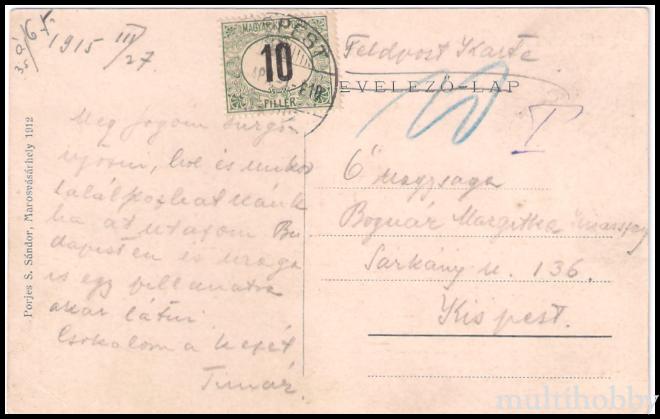 1915 III/27
MAGYAR
10
FILLÉR
PEST
Feldpost Karte
LEVELEZŐ-LAP
T
Meg fogom sürgö-
nyözni, hol és mikor
találkozhatnánk
ha át utazom Bu-
dapesten és maga
is egy pillanatra
akar látni
Csókolom a kezét
Timár.
Ő nagysága
Bognár Margitka
Sárkány u. 136.
Kispest.
Porjes S. Sándor, Marosvásárhely 1912
multihobby